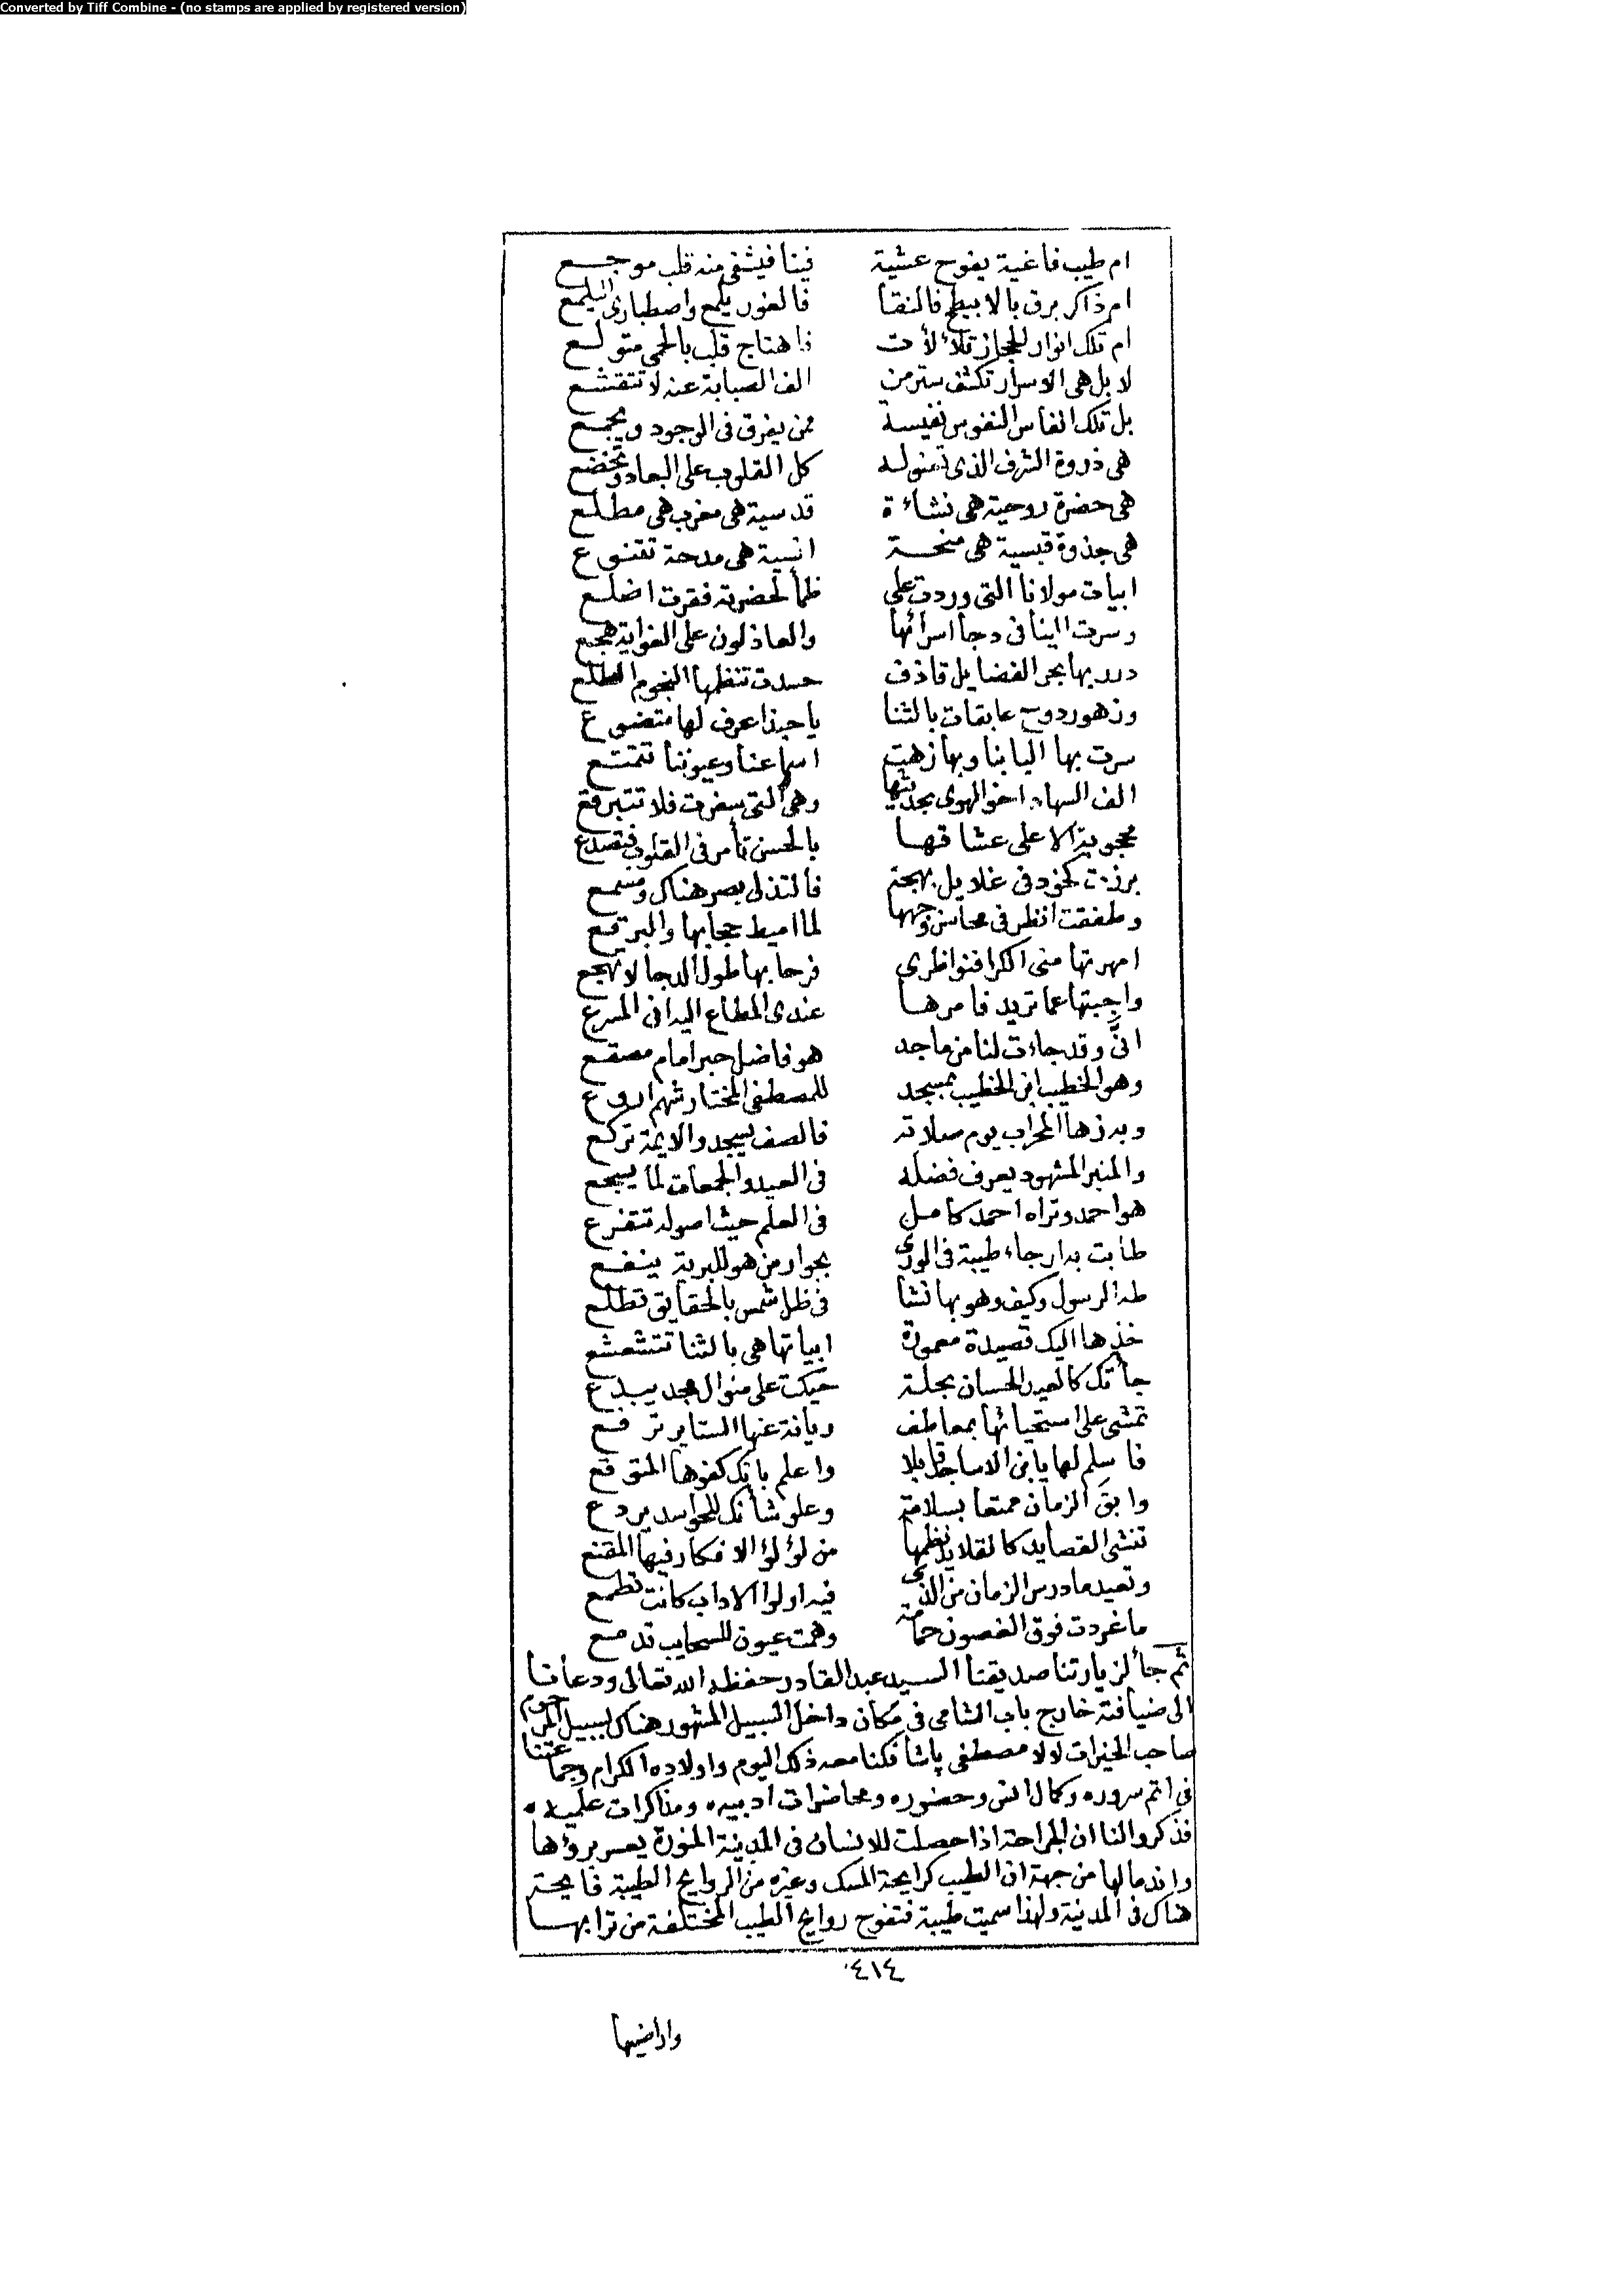 Converted by Tiff Combine - (no stamps are applied by registered version)
ام طيب فاغية يفوح عشية فينا فيشفى منه قلب موجع
ام ذاكر برق بالابيطح فالنقا فالغور يلمع واصطبارى
ام تلك انوار الحجاز تلألأت فاهتاج قلب بالحمى متولع
لا بل هى الاسرار تكشف ستر من الف الصبابة عنه لا تتقشع
بل تلك انفاس النفوس نفيسة ممن يفرق فى الوجود ويجمع
هى ذروة الشرف الذى تعنو له كل القلوب على البعاد وتخضع
هى حضرة روحية هى نشاءة قدسية هى مغرب هى مطلع
هى جذوة قبسية هى منحة انسية هى مدحة تتنوع
ابيات مولانا التى وردت على ظمأ لحضرته فقرت اضلع
وسرت الينا فى دجا اسرائها والعاذلون على الغواية هجع
درر بها بحر الفضايل قاذف حسدت تنظمها النجوم الطلع
وزهور دوح عابقات بالثنا يا حبذا عرف لها متضوع
سرت بها البابنا وبها زهت اسماعنا وعيوننا تتمتع
الف السهاد اخو الهوى بحديثها وهى التى سفرت فلا تتبرقع
محجوبة الا على عشاقها بالحسن تأمر فى القلوب فتصدع
برزت كخود فى غلايل بهجة فالتذلى بصر هناك ومسمع
وطفقت انظر فى محاسن وجهها لما اميط حجابها والبرقع
امهرتها منى الكرا فنواظرى فرحا بها طول الدجا لا تهجع
واجبتها عما تريد فامرها عندى المطاع اليه انى المسرع
انى وقد جاءت لنا من ماجد هو فاضل حبر امام مصقع
وهو الخطيب ابن الخطيب بمسجد للمصطفى المختار شهم اروع
وبه زها المحراب يوم صلاته فالصف يسجد والايمة تركع
والمنبر المشهود يعرف فضله فى العيد والجمعات لما يسجع
هو احمد وتراه احمد كامل فى العلم حيث اصوله تتفرع
طابت به ارجاء طيبة فى الورى بجوار من هو للبرية ينفع
طه الرسول وكيف وهو بها نشا فى ظل شمس بالحقايق تطلع
خذها اليك قصيدة معمورة ابياتها هى بالثنا تتشعشع
جأتك كالعيد الحسان بحلة حيكت على منوال مجد يبدع
تمشى على استحيائها بمعاطف ريانة عنها الستاير ترفع
فاسلم لها يا ابن الاماجد قابلا واعلم بانك كفوها المتوقع
وابق الزمان ممتعا بسلامة وعلو شأنك للحواسد يردع
تنشى القصايد كالقلايد نظمها من لؤلؤ الافكار فيها المقنع
وتعيد ما درس الزمان من الذى فيه اولوا الاداب كانت تطمع
ما غردت فوق الغصون حمامة وهمت عيون للسحايب تدمع
ثم جأ لزيارتنا صديقنا السيد عبد القادر حفظه الله تعالى ودعانا
الى ضيافته خارج باب الشامى فى مكان داخل السبيل المشهور هناك بسبيل المرحوم
صاحب الخيرات لالا مصطفى پاشا فكنا معه ذلك اليوم واولاده الكرام وجماعتنا
فى اتم سروره وكمال انس وحضوره ومحاضرات ادبيه ومذاكرات علميه
فذكروا لنا ان الجراحة اذا حصلت للانسان فى المدينة المنورة يعسر برؤها
واندمالها من جهة ان الطيب كرايحة المسك وغيره من الروايح الطيبة فايحة
هناك فى المدينة ولهذا سميت طيبة فتفوح روايح الطيب المختلفة من ترابها
٤١٤
واراضيها